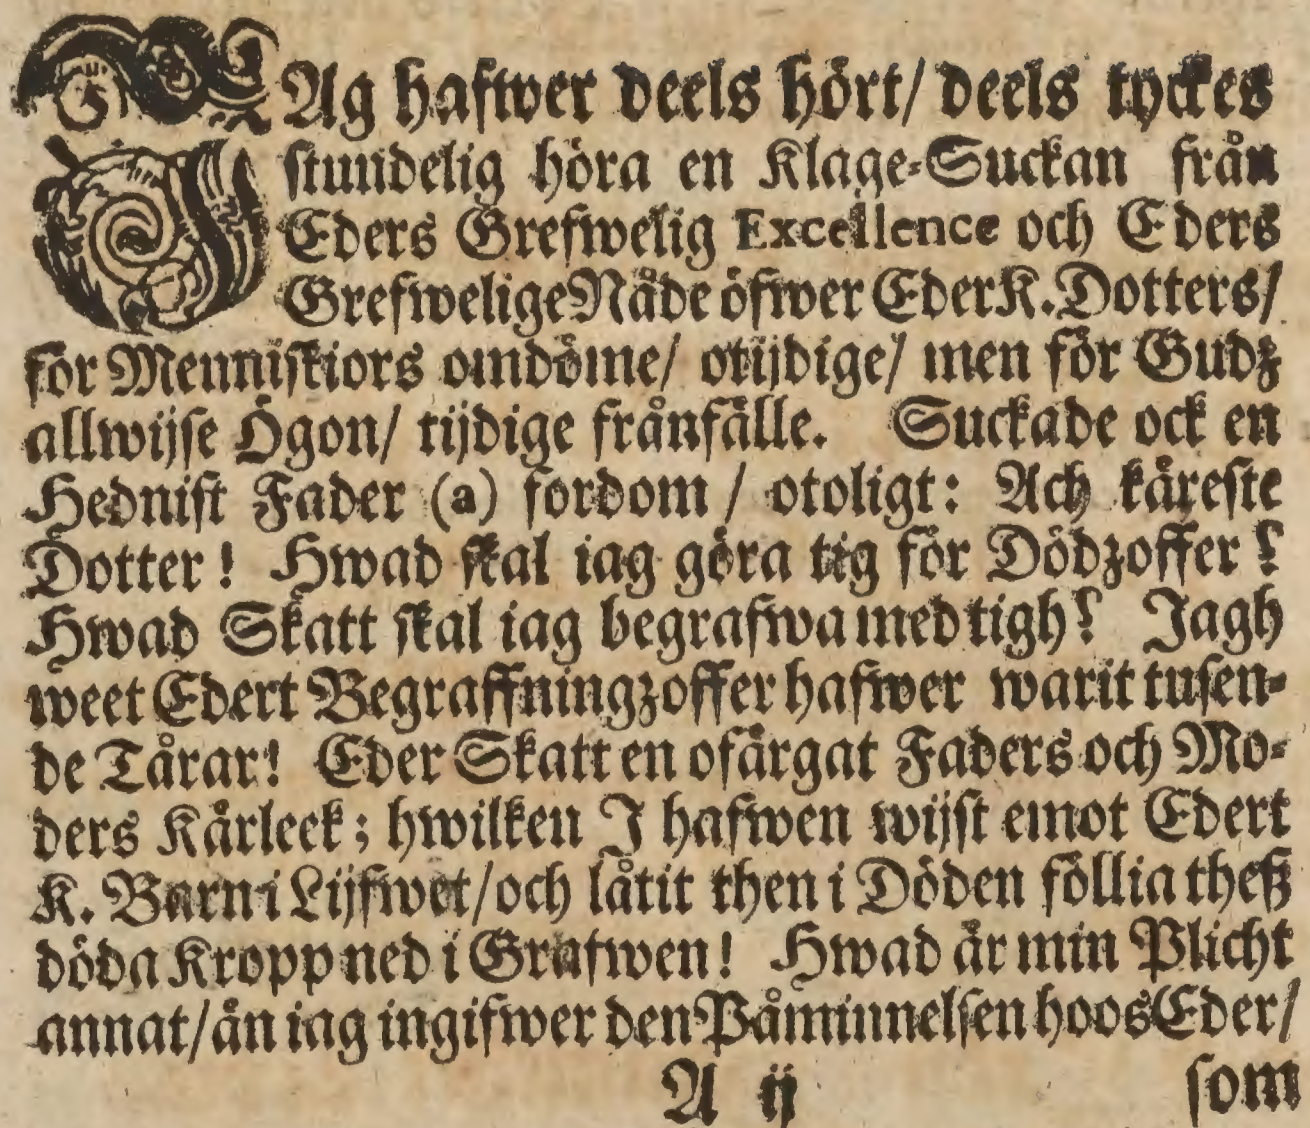 JAg hafwer deels hört/ deels tyckes
stundelig höra en Klage-Suckan från
Eders Grefwelig Excellence och Eders
Grefwelige Nåde öfwer Eder K. Dotters/
för Menniskiors omdöme/ otijdige/ men för Gudz
allwijse Ögon/ tijdige frånfälle. Suckade ock en
Hednisk Fader (a) fordom / otoligt: Ach käreste
Dotter! Hwad skal iag göra tig för Dödzoffer?
Hwad Skatt skal iag begrafwa med tigh? Jagh
weet Edert Begraffningzoffer hafwer warit tusen-
de Tårar! Eder Skatt en ofärgat Faders och Mo-
ders Kärleek; hwilken J hafwen wijst emot Edert
K. Barn i Lijfwet/och låtit then i Döden föllia theß
döda Kropp ned i Grafwen! Hwad är min Plicht
annat/än iag ingifwer den Påminnelsen hoos Eder/
A ij som